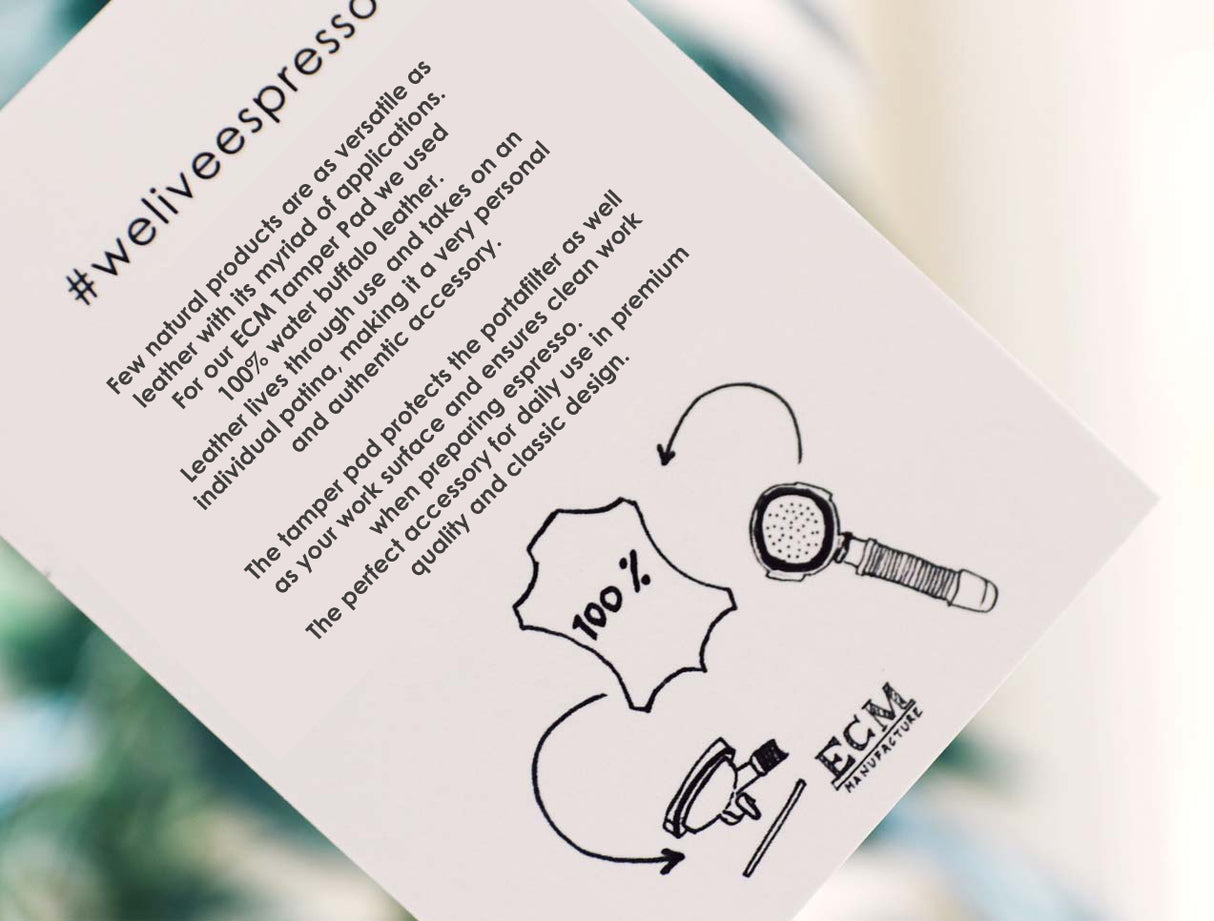 #weliveespresso
Few natural products are as versatile as
leather with its myriad of applications.
For our ECM Tamper Pad we used
100% water buffalo leather.
Leather lives through use and takes on an
individual patina, making it a very personal
and authentic accessory.
The tamper pad protects the portafilter as well
as your work surface and ensures clean work
when preparing espresso.
The perfect accessory for daily use in premium
quality and classic design.
100 %
ECM
MANUFACTURE